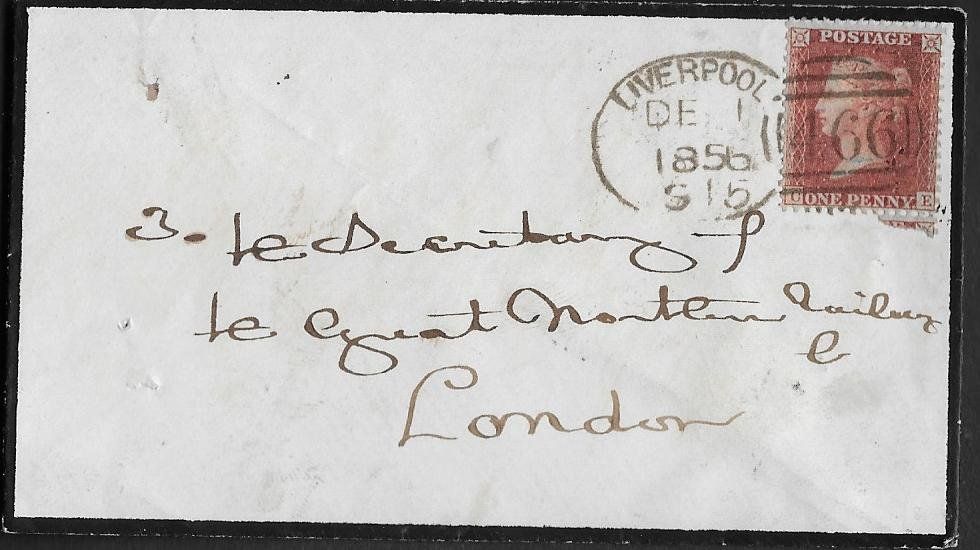 POSTAGE
LIVERPOOL
DE 1
1856
S 15
466
ONE PENNY E
3. te Secretary of
te Great Northern Railway
C
London